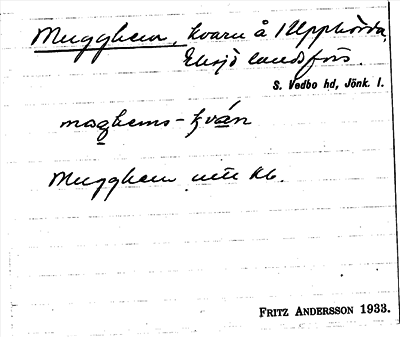 Mugghem, kvarn å Upphärda,
Eksjö landsförs.
S. Vedbo hd, Jönk. l.
moghems-kván
Mugghem utt. kb.
FRITZ ANDERSSON 1933.